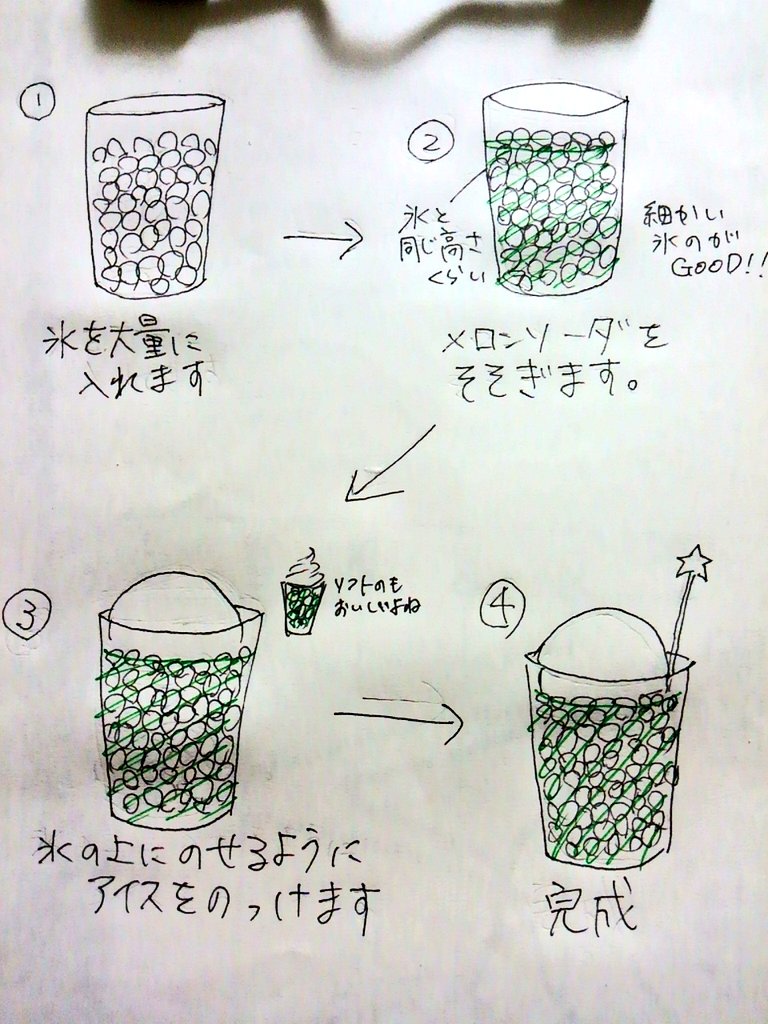 ①
氷を大量に
入れます
②
氷と
同じ高さ
くらい
細かい
氷のが
GOOD!!
メロンソーダを
そそぎます。
③
ソフトのも
おいしいよね
氷の上にのせるように
アイスをのっけます
④
完成